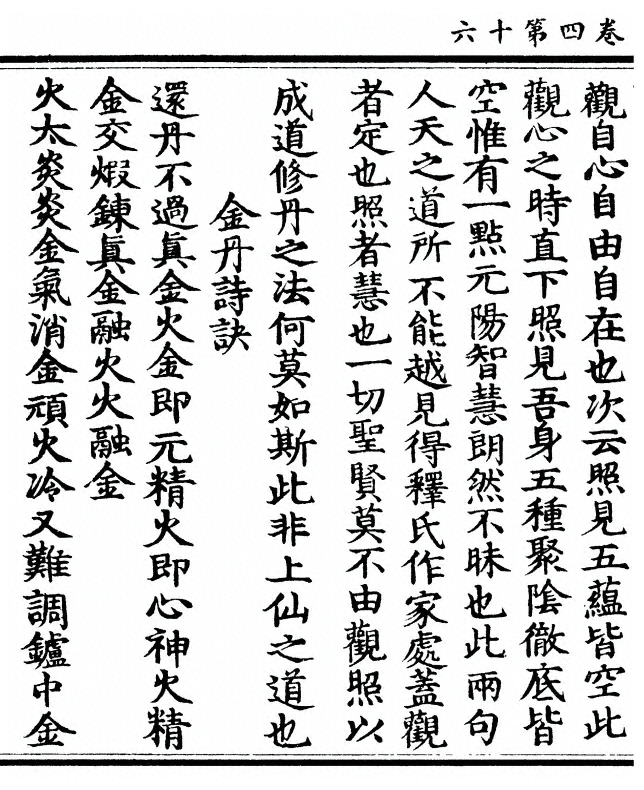 卷四第十六
觀自心自由自在也次云照見五蘊皆空此
觀心之時直下照見吾身五種聚陰徹底皆
空惟有一點元陽智慧朗然不昧也此兩句
人天之道所不能越見得釋氏作家處蓋觀
者定也照者慧也一切聖賢莫不由觀照以
成道修丹之法何莫如斯此非上仙之道也
金丹詩訣
還丹不過眞金火金即元精火即心神火精
金交煆鍊眞金融火火融金
火太炎炎金氣消金頑火冷又難調鑪中金